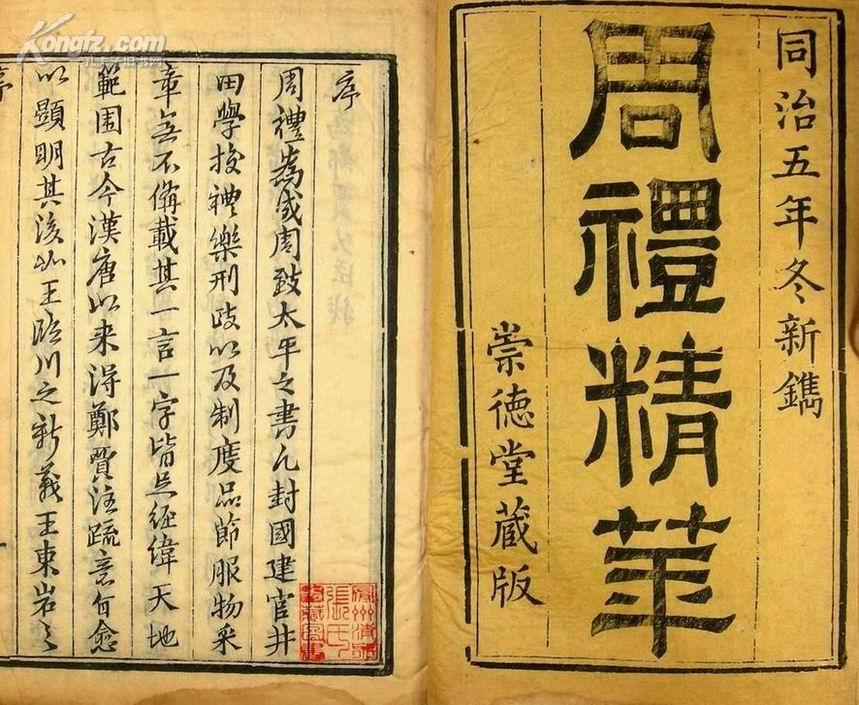 同治五年冬新鐫
周禮精華
崇德堂藏版
序
周禮為成周致太平之書凡封國建官井
田學校禮樂刑政以及制度品節服物采
章無不備載其一言一字皆足經緯天地
範围古今漢唐以来得鄭賈注疏意旨愈
以顯明其後如王臨川之新義王東岩之
序
Kongfz.com